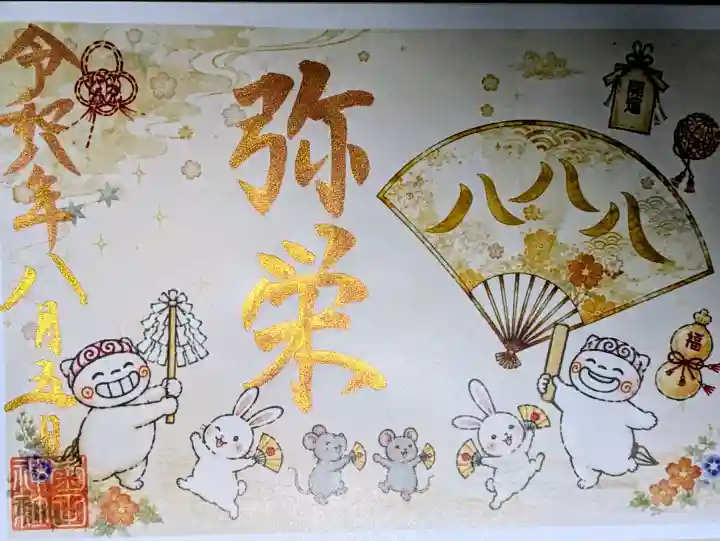 弥栄
八八八
開運
福
令和六年八月五日